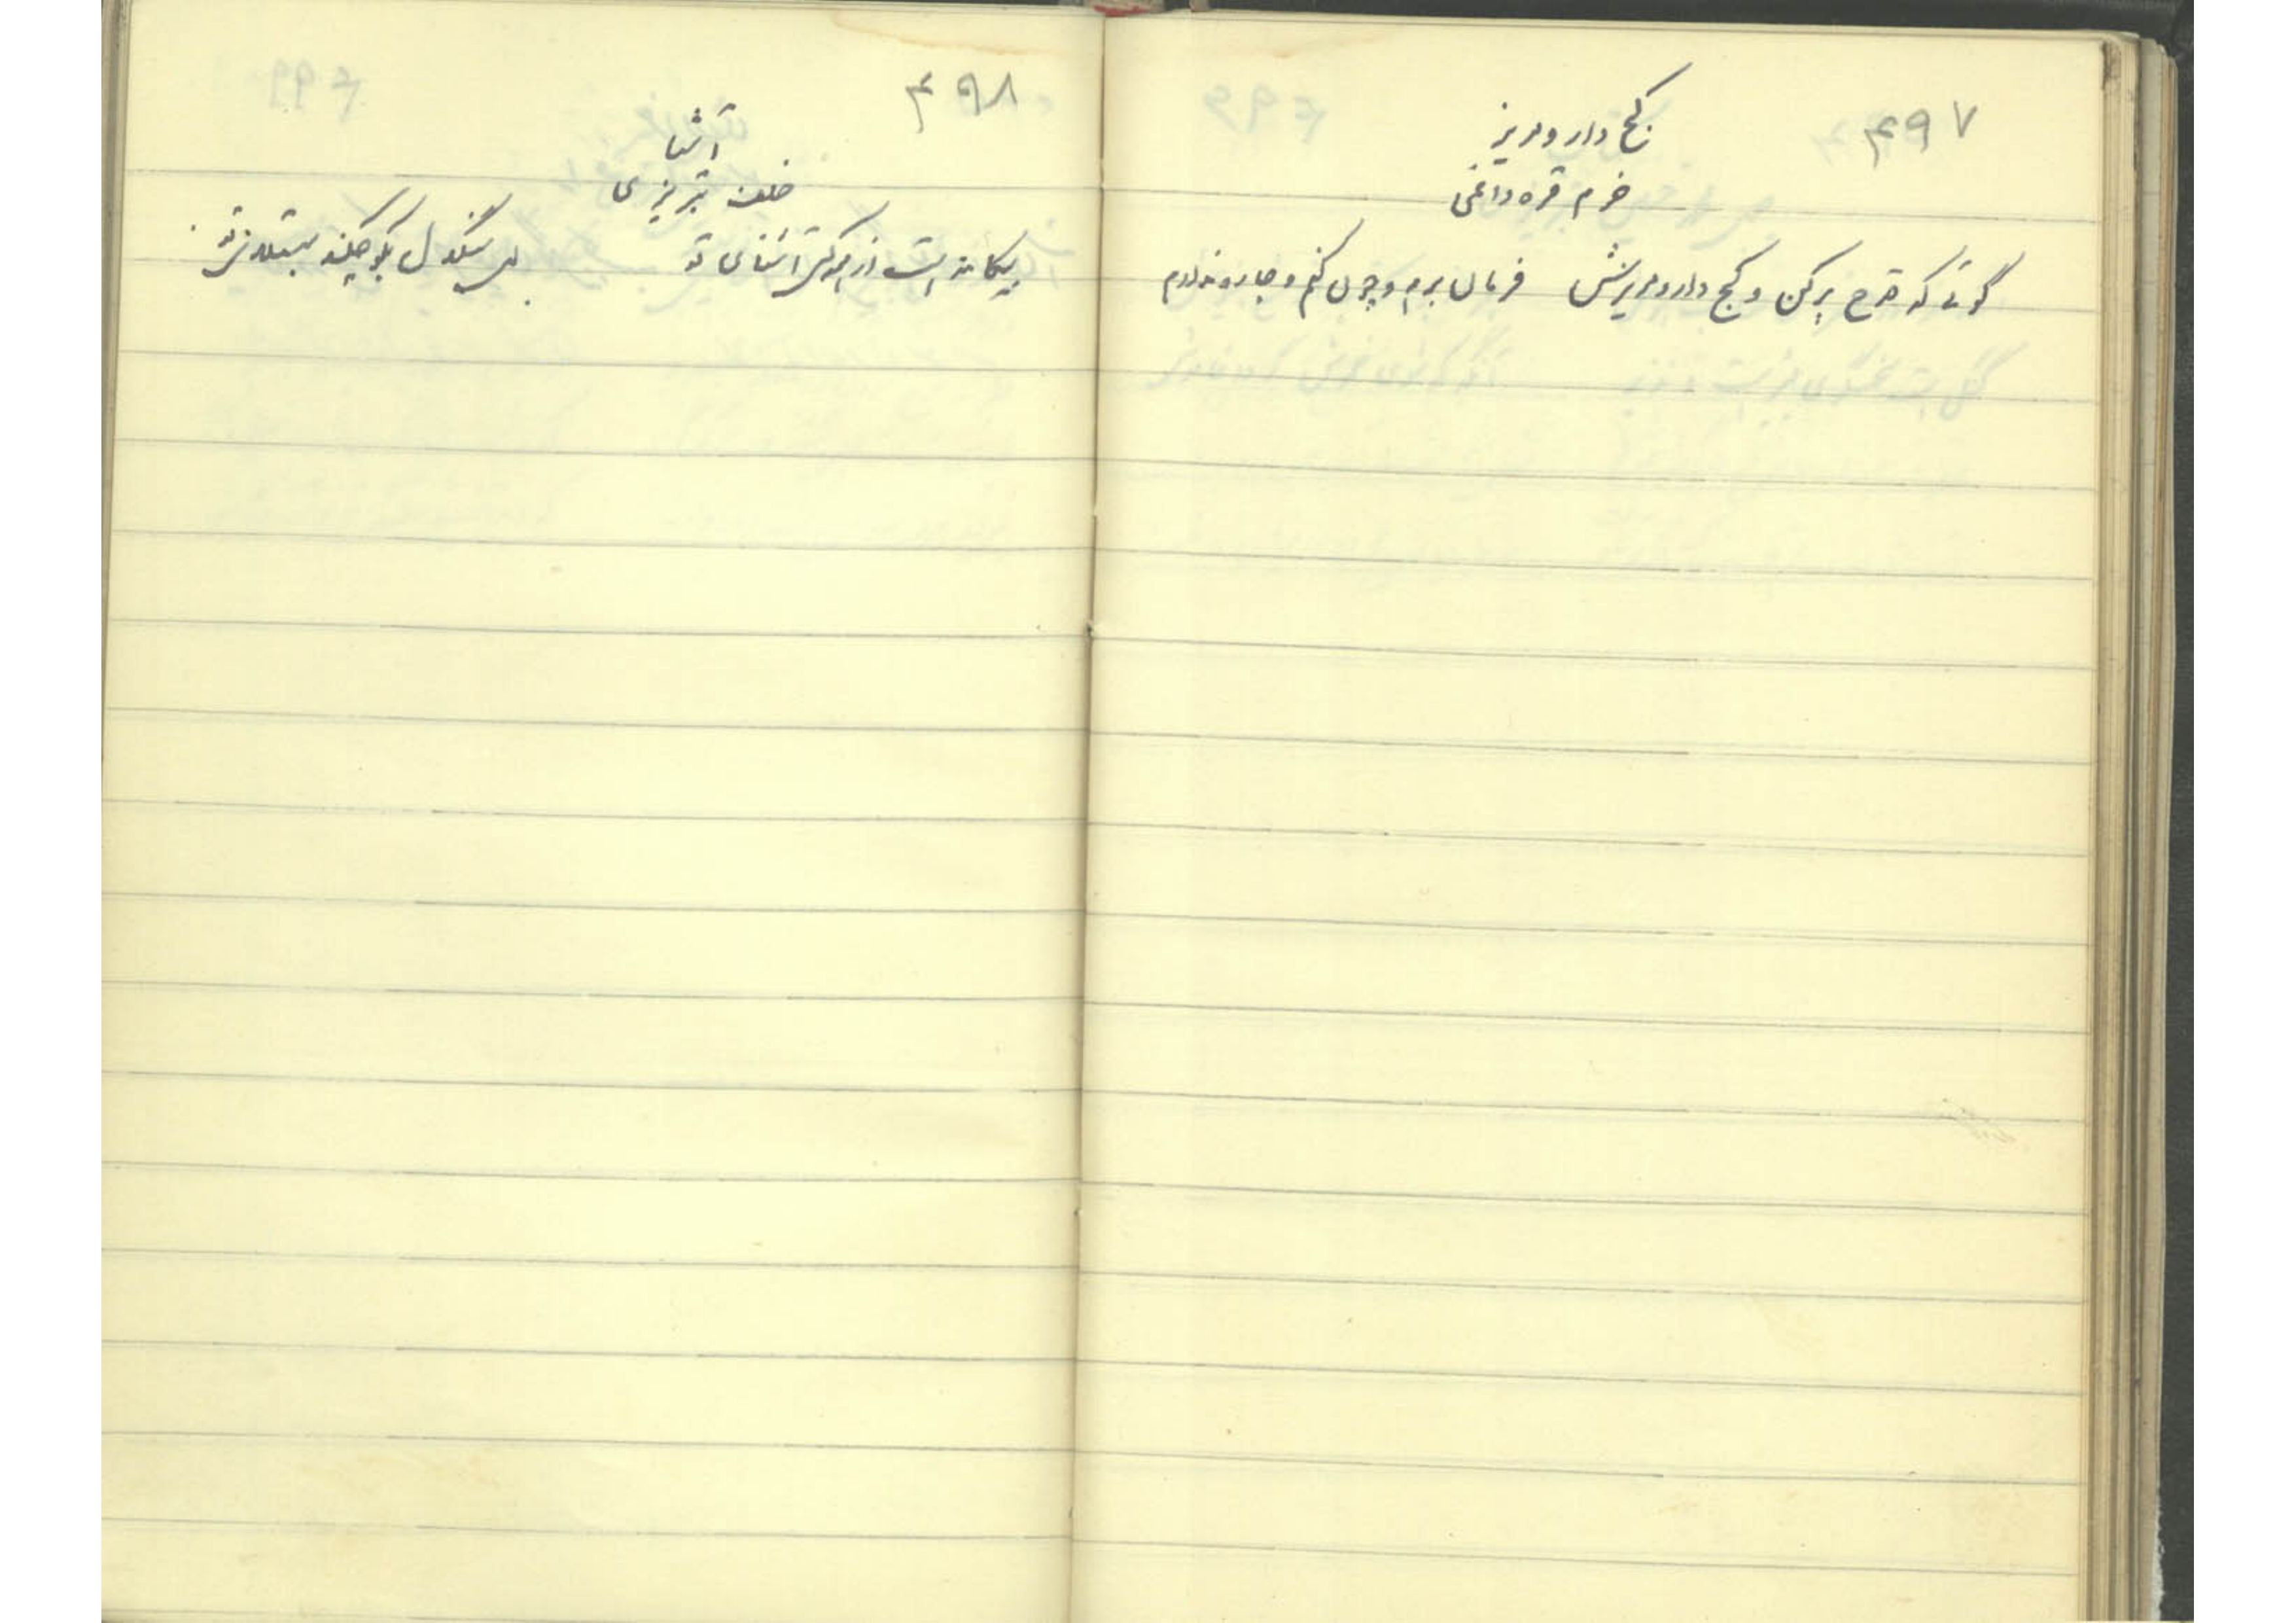 ۴۹۷
کج دار و مریز
خرم قره داغی
گوئی که قدح پر کن و کج دار و مریزش فرمان برم و چون کنم و چاره ندارم
۴۹۸
آشنا
خلف تبریزی
بیگانه است از همه کس آشنای تو
ای سنگدل بگو چکند مبتلای تو